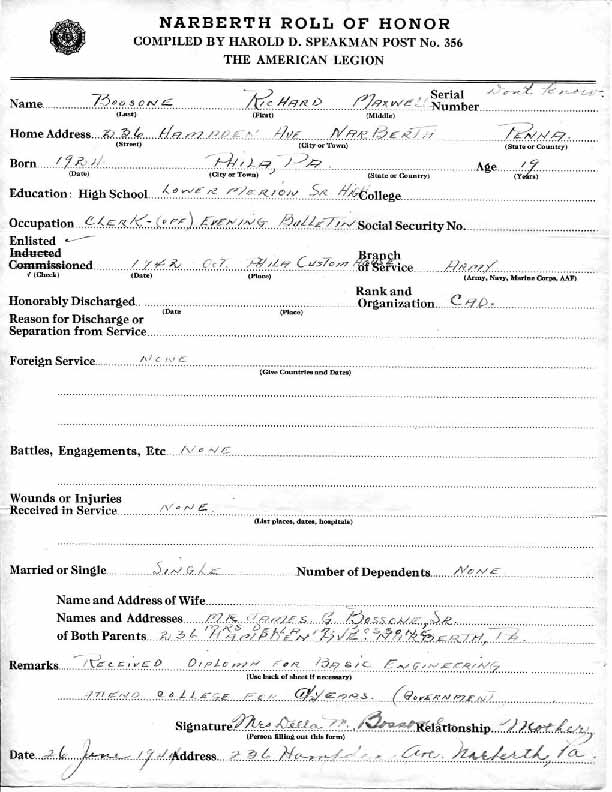 NARBERTH ROLL OF HONOR
COMPILED BY HAROLD D. SPEAKMAN POST No. 356
THE AMERICAN LEGION
Name Bossone Richard Maxwell Serial Number Don't know
(Last) (First) (Middle)
Home Address 236 Hampden Ave Narberth Penna.
(Street) (City or Town) (State or Country)
Born 1924 Phila, Pa. Age 19
(Date) (City or Town) (State or Country) (Years)
Education: High School Lower Merion Sr High College
Occupation Clerk-(off) Evening Bulletin Social Security No.
Enlisted ✓
Inducted Branch
Commissioned 1942 Oct Phila Custom House of Service Army
✓ (Check) (Date) (Place) (Army, Navy, Marine Corps, AAF)
Honorably Discharged Rank and Organization Cad.
(Date (Place)
Reason for Discharge or
Separation from Service
Foreign Service None
(Give Countries and Dates)
Battles, Engagements, Etc None
Wounds or Injuries
Received in Service None.
(List places, dates, hospitals)
Married or Single Single Number of Dependents None
Name and Address of Wife
Names and Addresses Mr James G. Bossone, Sr.
of Both Parents 236 Hampden Ave. Narberth, Pa.
Remarks Received Diploma for Basic Engineering
(Use back of sheet if necessary)
attend college for years. (Government)
Signature Mrs Della M. Bossone Relationship Mother
(Person filling out this form)
Date 26 June 1944 Address 236 Hampden Ave. Narberth, Pa